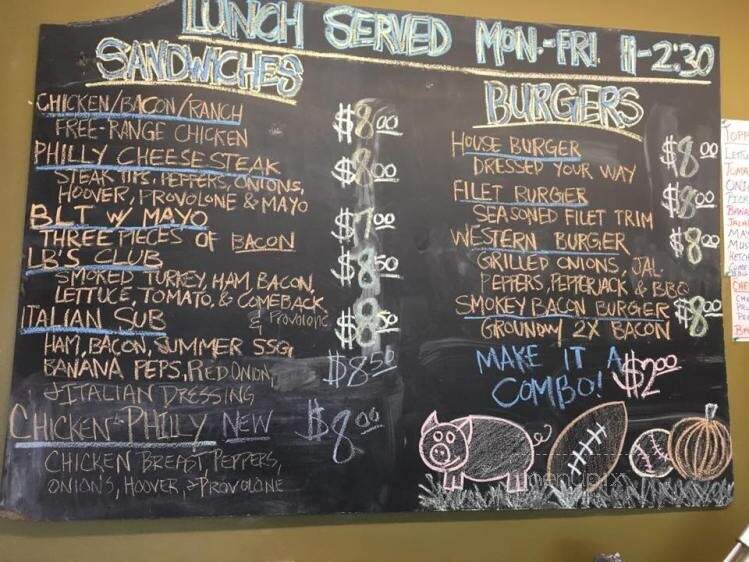 LUNCH SERVED MON.-FRI 11-2:30
SANDWICHES
CHICKEN/BACON/RANCH $8.00
FREE-RANGE CHICKEN
PHILLY CHEESE STEAK $8.00
STEAK TIPS, PEPPERS, ONIONS,
HOOVER, PROVOLONE & MAYO
BLT W/ MAYO $7.00
THREE PIECES OF BACON
LB'S CLUB $8.50
SMOKED TURKEY, HAM, BACON,
LETTUCE, TOMATO, & COMEBACK
& PROVOLONE
ITALIAN SUB $8.50
HAM, BACON, SUMMER SSG, $8.50
BANANA PEPS, RED ONION,
& ITALIAN DRESSING
CHICKEN PHILLY NEW $8.00
CHICKEN BREAST, PEPPERS,
ONIONS, HOOVER, & PROVOLONE
BURGERS
HOUSE BURGER $8.00
DRESSED YOUR WAY
FILET BURGER $8.00
SEASONED FILET TRIM
WESTERN BURGER $8.00
GRILLED ONIONS, JAL.
PEPPERS, PEPPERJACK & BBQ
SMOKEY BACON BURGER $8.00
GROUND W/ 2X BACON
MAKE IT A
COMBO! $2.00
menupix